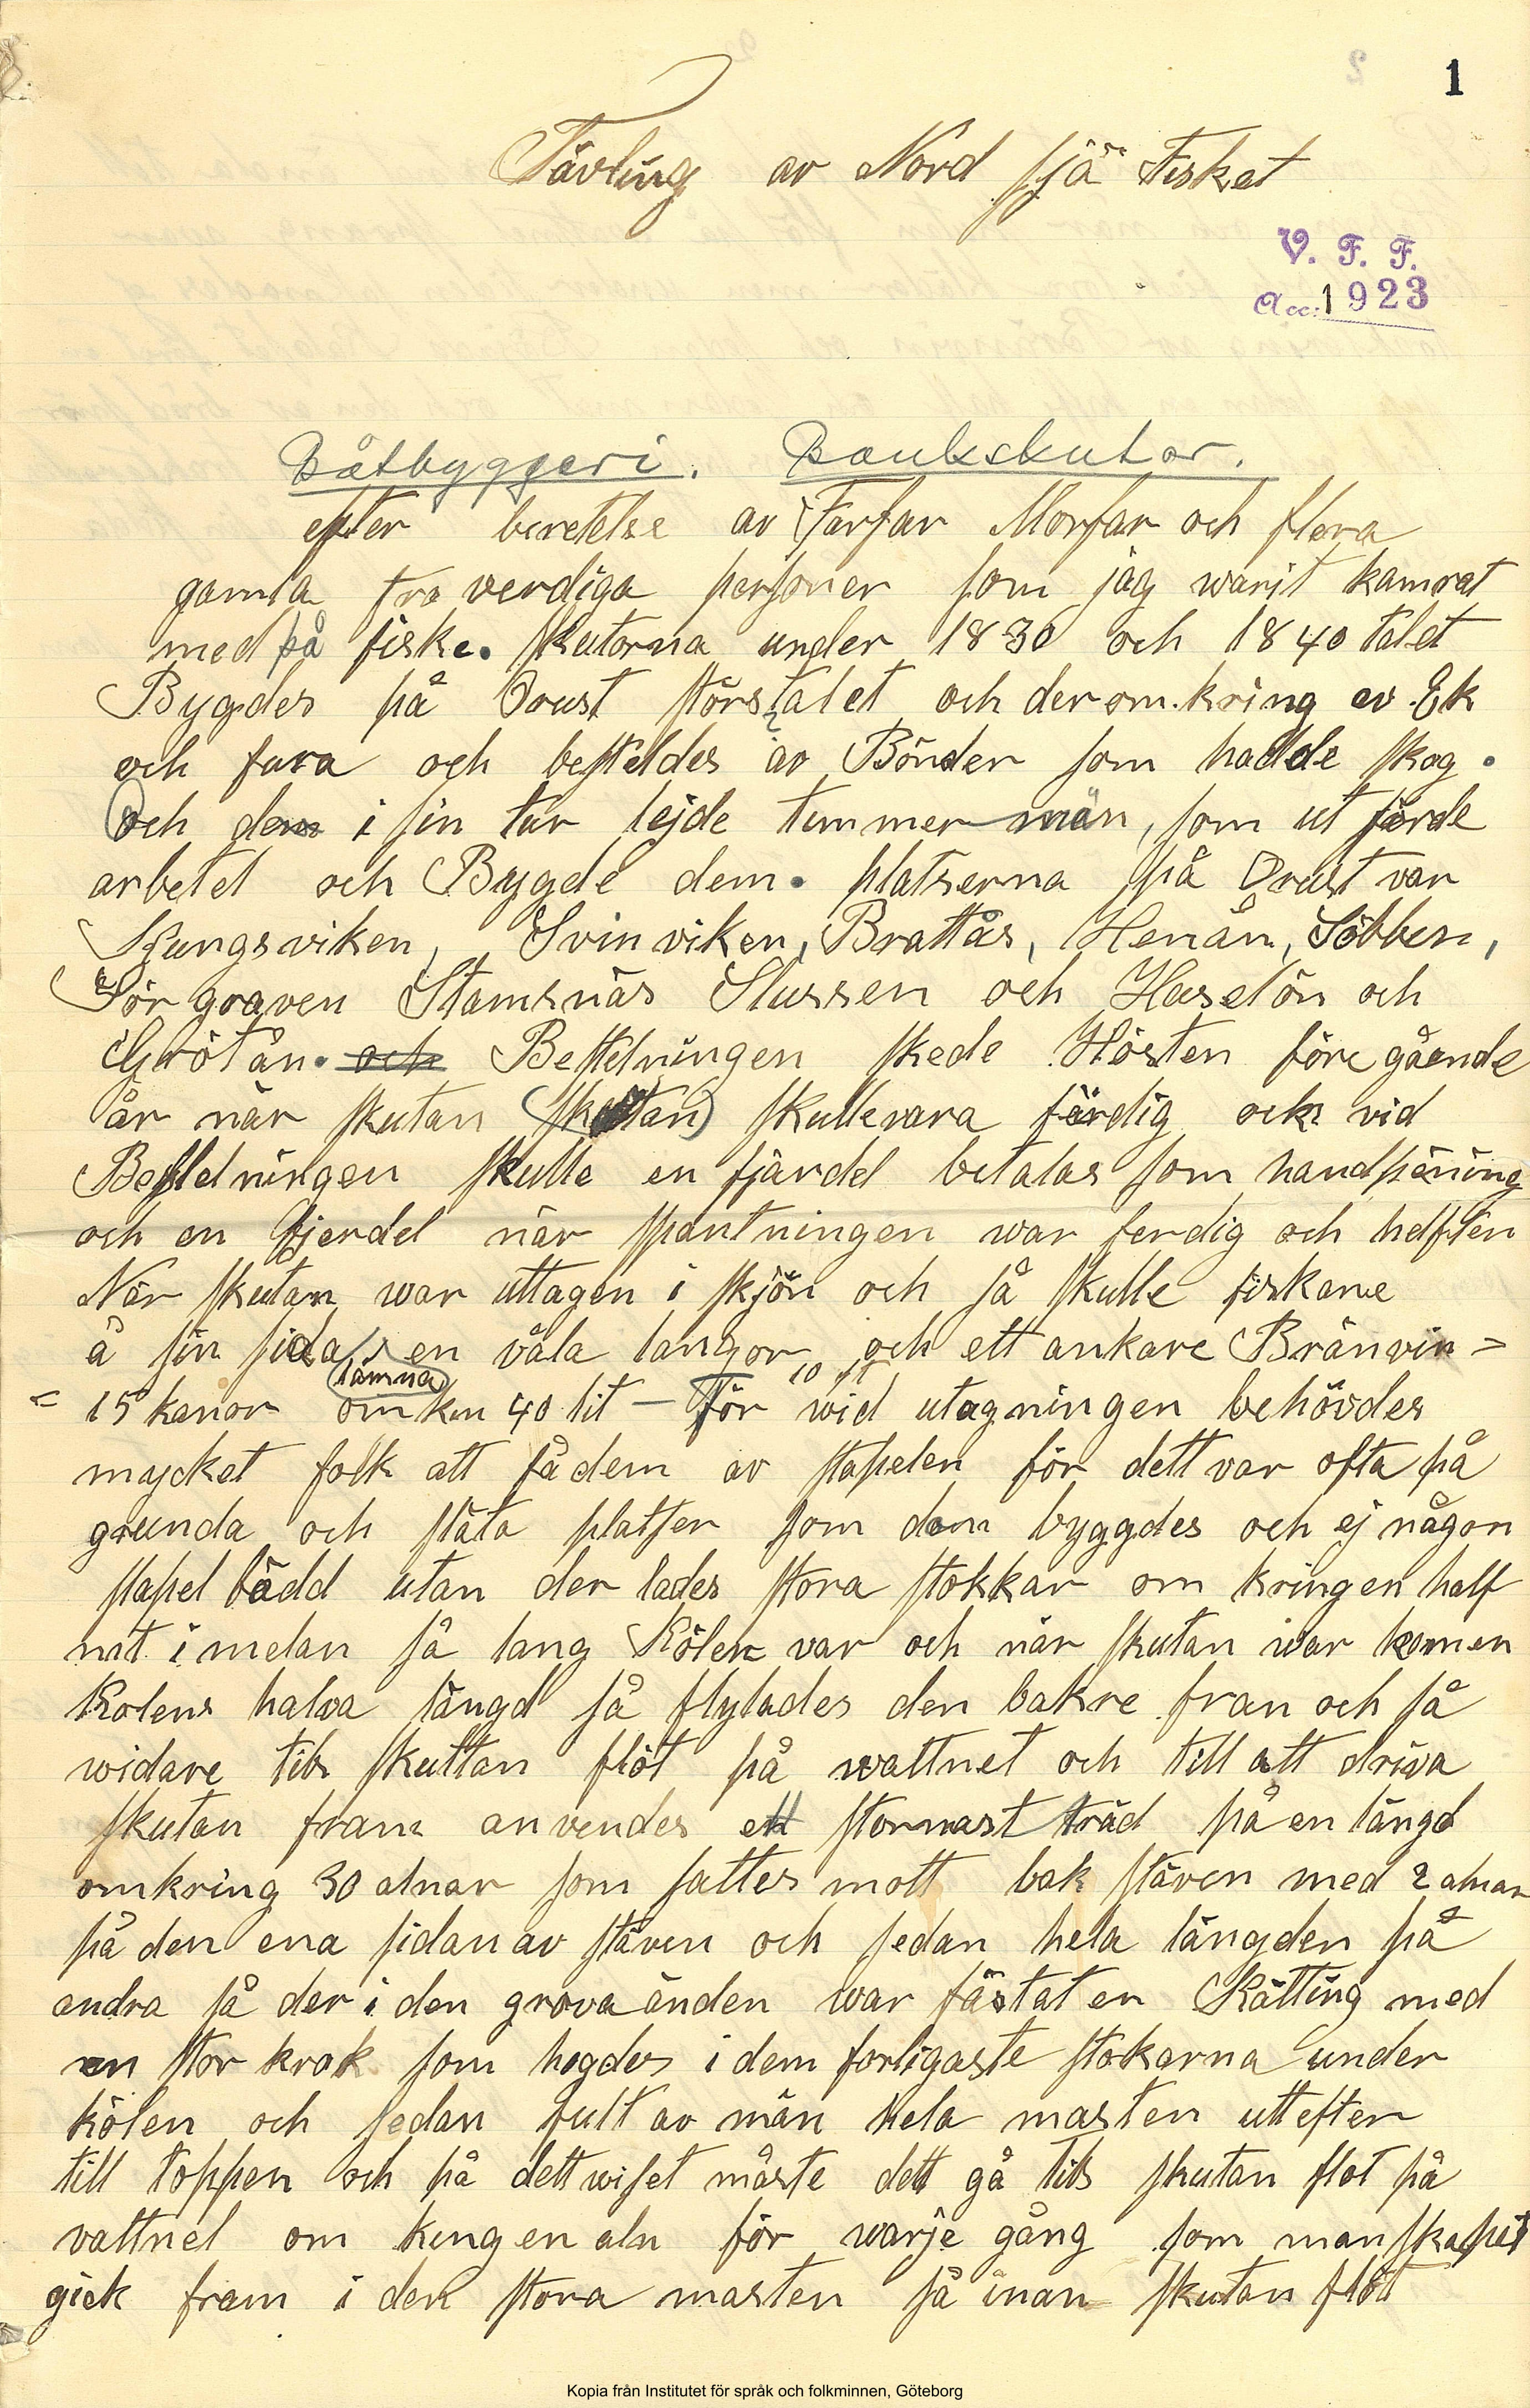 1
Tävling av Nord sjö Fisket
V. F. F.
Acc: 1923
Båtbyggeri. Bankskutor.
efter beretelse av Farfar Morfar och flera
gamla tro verdiga personer som jag warit kamrat
med på fiske. skutorna under 1830 och 1840 talet
Bygdes på Orust störstalet och der om.kring av Ek
och fura och besteldes av Bönder som hadde skog.
och dem i sin tur lejde timmer män, som ut förde
arbetet och Bygde dem. platserna på Orust var
Kungsviken, Svinviken, Brattås, Henån, Söbben,
Törgraven Stamsnäs Slussen och Haselön och
Grötån. och Bestelningen skede Hösten före gående
år när skutan (skutan) skulle vara färdig och vid
Bestelningen skulle en fjärdel betalas som handpäning
och en fjerdel när spantningen war ferdig och helften
När skutan war uttagen i skjön och så skulle fiskarne
å sin sida en våla langor och ett ankare Bränvin =
lämna 10 st
= 15 kanor omkn 40 lit – För wid utagningen behövdes
mycket folk att få dem av stapelen för dett var ofta på
grunda och släta platser som dom byggdes och ej någon
stapel bädd utan der lades stora stokkar om kring en half
mt. i melan så lang Kölen var och när skutan war komen
Kolens halva längd så flytades den bakre fran och så
widare tils skuttan flöt på wattnet och till att driva
skutan fram anvendes ett stormast träd på en längd
omkring 30 alnar som sattes mott bak stäven med 2 alnar
på den ena sidan av stäven och sedan hela längden på
andra så der i den grova änden war fästat en Kätting med
en stor krok som hogdes i dem forligaste stokarna under
kölen och sedan fult av män hela masten utt efter
till toppen och på dett wiset måste dett gå tils skutan flot på
vattnel om kring en aln för warje gång som manskapet
gick fram i den stora masten så inan skutan flöt
Kopia från Institutet för språk och folkminnen, Göteborg